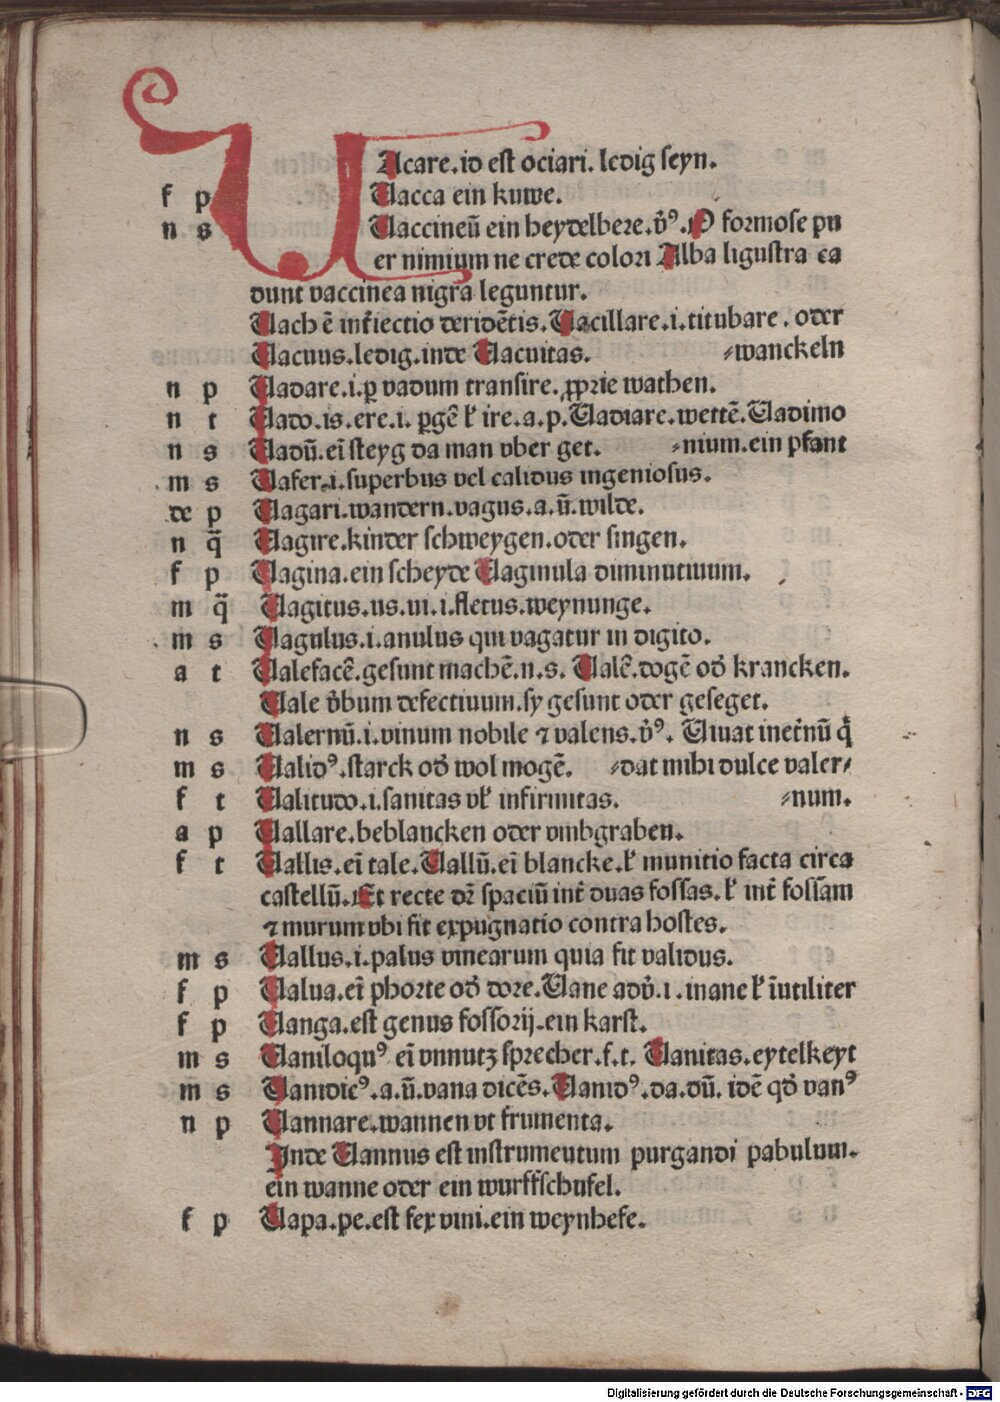 UAcare.id est ociari. ledig seyn.
f p Uacca ein kuwe.
n s Uaccineū ein heydelbere.v̉ꝰ. O formose pu
er nimium ne crede colori Alba ligustra ca
dunt vaccinea nigra leguntur.
Uach ē int̄iectio deridētis. Uacillare.i.titubare. oder
Uacuus.ledig.inde Uacuitas. ⸗wanckeln
n p Uadare.i.ꝑ vadum transire. ꝓprie wathen.
n t Uado.is.ere.i. ꝑgē ł ire.a.p.Uadiare.wettē.Uadimo
n s Uadū.eī steyg da man vber get. ⸗nium.ein pfant
m s Uafer.i.superbus vel calidus ingeniosus.
de p Uagari.wandern.vagus.a.ū.wilde.
n q̄ Uagire.kinder schweygen.oder singen.
f p Uagina.ein scheyde Uaginula diminutiuum.
m q̄ Uagitus.us.ui.i.fletus.weynunge.
m s Uagulus.i.anulus qui vagatur in digito.
a t Ualefacē.gesunt machē.n.s. Ualē.togē od̉ krancken.
Uale v̉bum defectiuum.sy gesunt oder geseget.
n s Ualernū.i.vinum nobile ⁊ valens.v̉ꝰ. Uiuat inet̉nū q̇
m s Ualidꝰ.starck od̉ wol mogē. ⸗dat mihi dulce valer⸗
f t Ualitudo.i.sanitas vł infirmitas. ⸗num.
a p Uallare.beblancken oder vmbgraben.
f t Uallis.eī tale.Uallū.eī blancke.ł munitio facta circa
castellū.Et recte dr̄ spaciū int̄ duas fossas.ł int̄ fossam
⁊ murum vbi fit expugnatio contra hostes.
m s Uallus.i.palus vinearum quia fit validus.
f p Ualua.eī phorte od̉ dore.Uane adv̉.i.inane ł īutiliter
f p Uanga.est genus fossorij.ein karst.
m s Uaniloquꝰ eī vnnutz sprecher.f.t. Uanitas.eytelkeyt
m s Uanidicꝰ.a.ū.vana dicēs.Uanidꝰ.da.dū. idē qd̉ vanꝰ
n p Uannare.wannen vt frumenta.
Inde Uannus est instrumeutum purgandi pabulum.
ein wanne oder ein wurffschufel.
f p Uapa.pe.est fex vini.ein weynhefe.
Digitalisierung gefördert durch die Deutsche Forschungsgemeinschaft - DFG